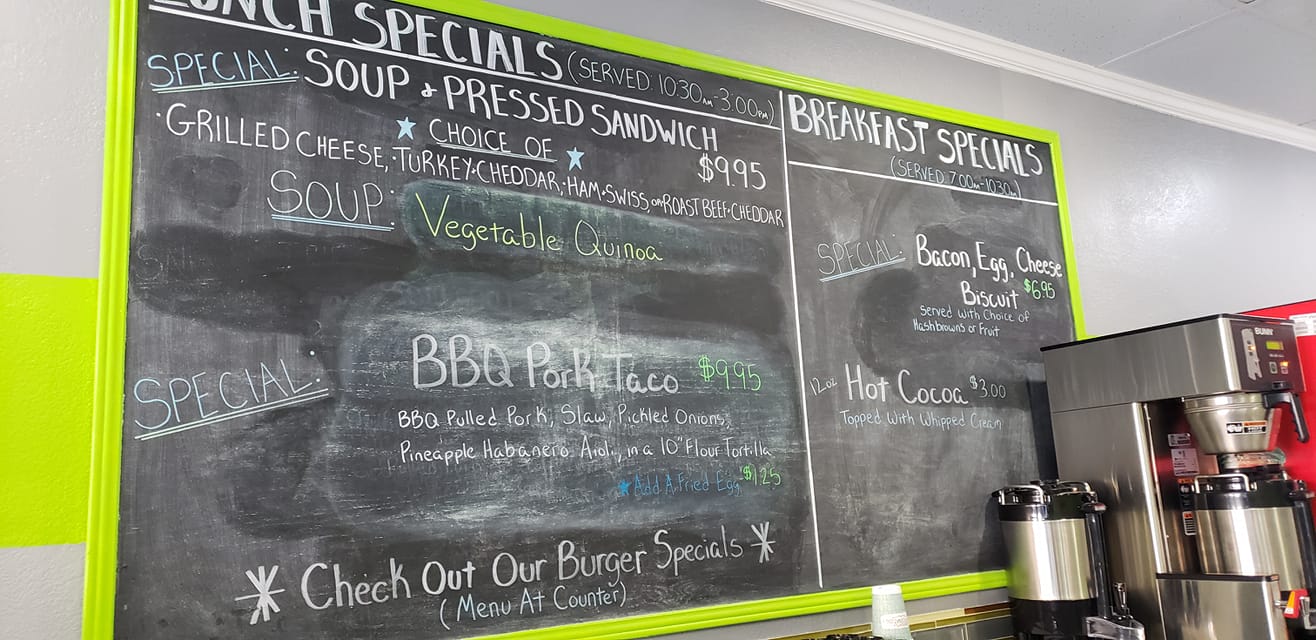 LUNCH SPECIALS (SERVED 10:30AM-3:00PM)
SPECIAL: SOUP & PRESSED SANDWICH
CHOICE OF $9.95
·GRILLED CHEESE, ·TURKEY·CHEDDAR, ·HAM·SWISS, OR ·ROAST BEEF·CHEDDAR
SOUP: Vegetable Quinoa
SPECIAL: BBQ Pork Taco $9.95
BBQ Pulled Pork, Slaw, Pickled Onions,
Pineapple Habanero Aioli, in a 10" Flour Tortilla
Add A Fried Egg $1.25
Check Out Our Burger Specials
(Menu At Counter)
BREAKFAST SPECIALS
(SERVED 7:00AM-10:30AM)
SPECIAL: Bacon, Egg, Cheese
Biscuit $6.95
Served With Choice of
Hashbrowns or Fruit
12oz Hot Cocoa $3.00
Topped With Whipped Cream
BUNN